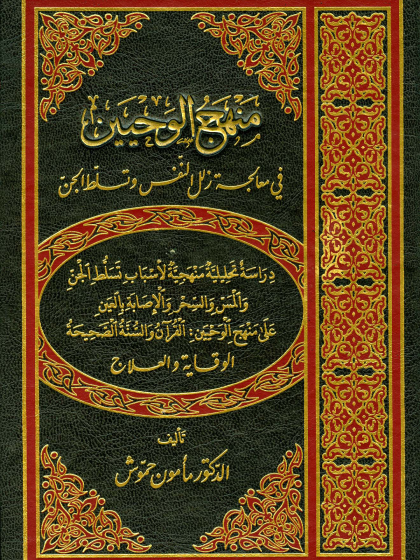 منهج الوحيين
في معالجة زلل النفس وتسلط الجن
دراسة تحليلية منهجية لأسباب تسلط الجن
والمس والسحر والإصابة بالعين
على منهج الوحيين: القرآن والسنة الصحيحة
الوقاية والعلاج
تأليف
الدكتور مأمون حموش